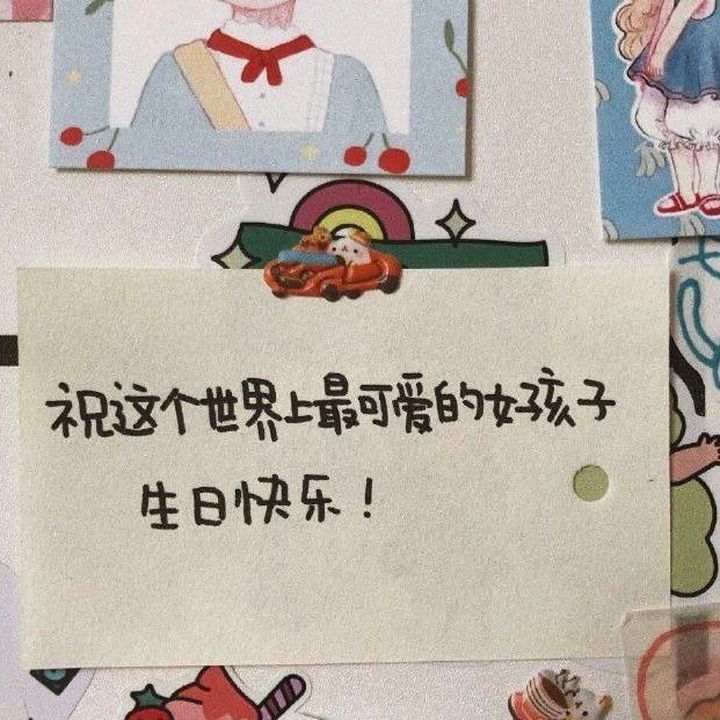 祝这个世界上最可爱的好孩子
生日快乐！